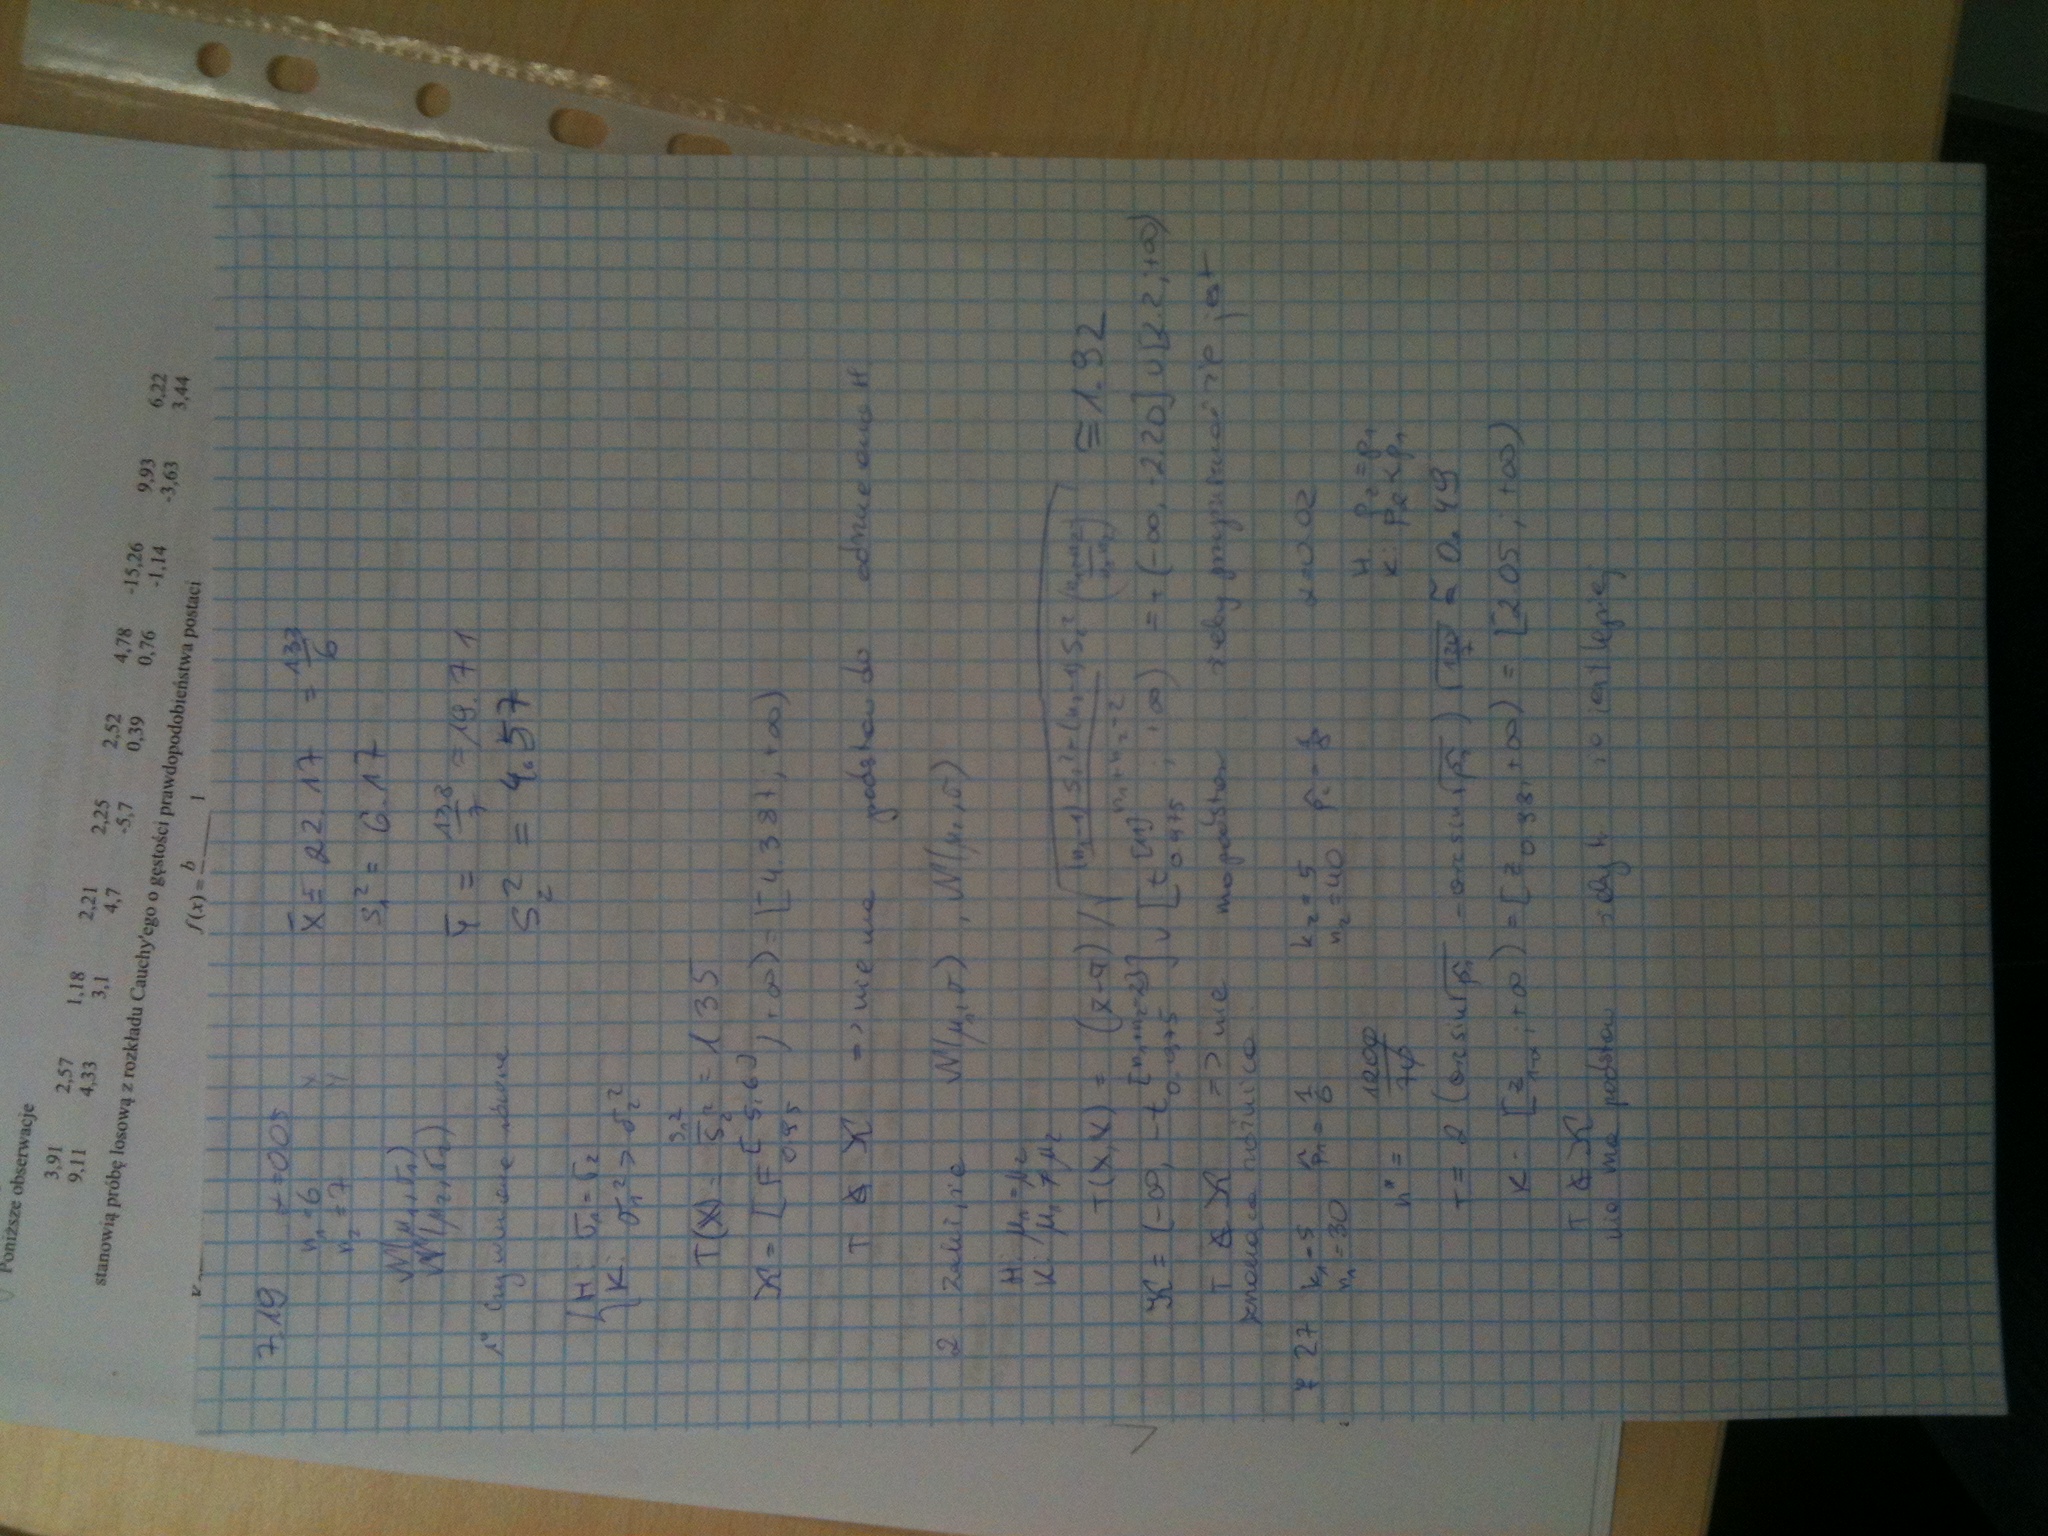 Poniższe obserwacje
3,91 2,57 1,18 2,21 2,25 2,52 4,78 -15,26 9,93 6,22
9,11 4,33 3,1 4,7 -5,7 0,39 0,76 -1,14 -3,63 3,44
stanowią próbę losową z rozkładu Cauchy'ego o gęstości prawdopodobieństwa postaci
f(x) = b 1
7.19 α = 0.05
n₁ = 6 X
n₂ = 7 Y
X̄ = 22.17 = 133/6
S₁² = 6.17
N(μ₁, σ₁)
N(μ₂, σ₂)
Ȳ = 138/7 = 19.71
1° Czy równe
S₂² = 4.57
H: σ₁ = σ₂
K: σ₁² > σ₂²
T(X) = S₁²/S₂² = 1.35
K = [F₀.₉₅^[5,6]; +∞) = [4.387; +∞)
T ∉ K => nie ma podstaw do odrzucenia H
2. N(μ₁, σ), N(μ₂, σ)
H: μ₁ = μ₂
K: μ₁ ≠ μ₂
T(X,Y) = (x̄-ȳ) / √((n₁-1)S₁²+(n₂-1)S₂²/(n₁+n₂-2) ((n₁+n₂)/(n₁n₂))) ≅ 1.92
K = (-∞, -t₀.₉₇₅^[n₁+n₂-2]] ∪ [t₀.₉₇₅^[11]; +∞) = (-∞, -2.20] ∪ [2.2; +∞)
T ∉ K => nie ma podstaw żeby że jest
znacząca różnica
7.27 k₁ = 5 p̂₁ = 1/6 k₂ = 5 p̂₂ = 1/8 α = 0.02
n₁ = 30 n₂ = 40
H: p₂ = p₁
K: p₂ < p₁
n* = 1200/70
T = 2 (arcsin√p̂₁ - arcsin√p̂₂) √(120/7) ≅ 0.49
K = [z₁₋α; +∞) = [z₀.₉₈; +∞) = [2.05; +∞)
T ∉ K
nie ma podstaw że jest lepiej